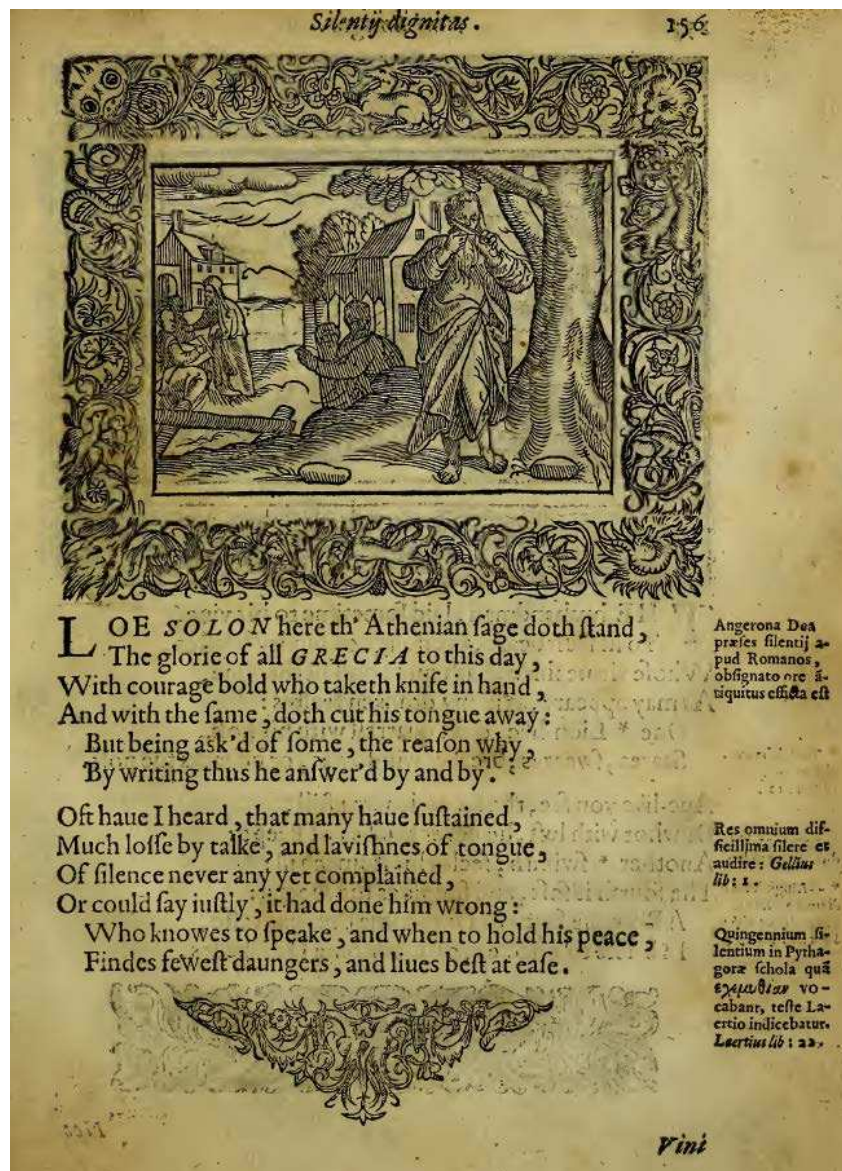 Silentij dignitas.
156
LOE SOLON here th' Athenian sage doth stand,
The glorie of all GRECIA to this day,
With courage bold who taketh knife in hand,
And with the same, doth cut his tongue away:
But being ask'd of some, the reason why,
By writing thus he answer'd by and by.
Oft haue I heard, that many haue sustained,
Much losse by talke, and lavishnes of tongue,
Of silence never any yet complained,
Or could say iustly, it had done him wrong:
Who knowes to speake, and when to hold his peace,
Findes fewest daungers, and liues best at ease.
Angerona Dea
præses silentij a-
pud Romanos,
obsignato ore ā-
tiquitus efficta est
Res omnium dif-
ficillima silere et
audire: Gellius
lib: 1.
Quingennium si-
lentium in Pytha-
goræ schola quā
ἐχεμυθίαν vo-
cabant, teste La-
ertio indicebatur.
Laertius lib: 22.
Vini